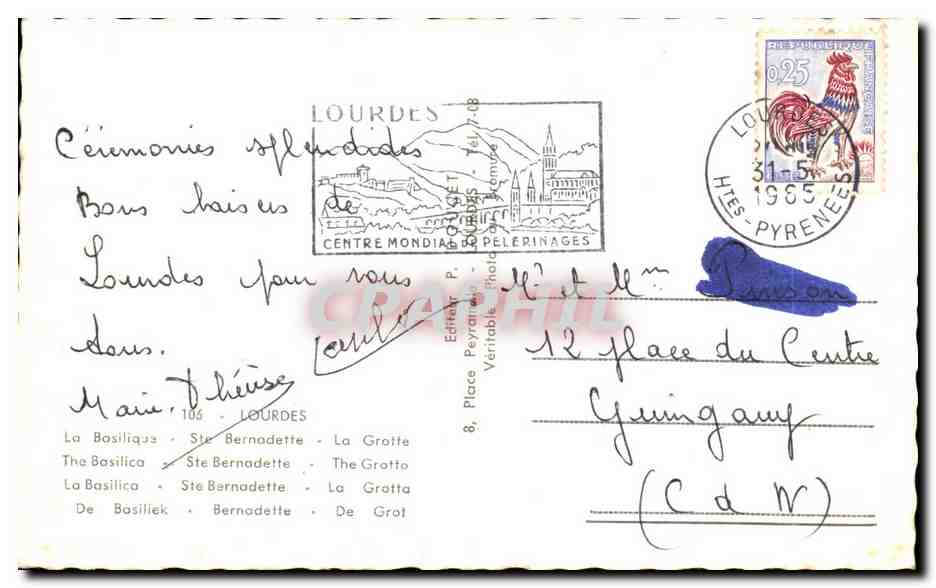 LOURDES
CENTRE MONDIAL DE PÈLERINAGES
REPUBLIQUE FRANÇAISE
0,25
LOURDES
31-5
1965
HTES-PYRENEES
Cérémonies splendides
Bons baisers de
Lourdes pour vous
tous.
Marie-Thérèse
106 - LOURDES
La Basilique - Ste Bernadette - La Grotte
The Basilica - Ste Bernadette - The Grotto
La Basilica - Ste Bernadette - La Grotta
De Basiliek - Bernadette - De Grot
Editeur P. DOUCET
8, Place Peyramale - LOURDES - Tél. 7-08
Véritable Photo au Bromure
CPAPHIL
Mr et Mme
12 place du Centre
Guingamp
(C d N)